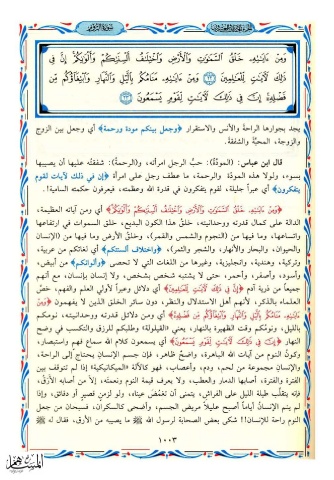 سورة الروم
وَمِنْ ءَايَٰتِهِۦ خَلْقُ ٱلسَّمَٰوَٰتِ وَٱلْأَرْضِ وَٱخْتِلَٰفُ أَلْسِنَتِكُمْ وَأَلْوَٰنِكُمْ إِنَّ فِى
ذَٰلِكَ لَءَايَٰتٍ لِّلْعَٰلِمِينَ ٢٢ وَمِنْ ءَايَٰتِهِۦ مَنَامُكُم بِٱلَّيْلِ وَٱلنَّهَارِ وَٱبْتِغَآؤُكُم مِّن
فَضْلِهِۦٓ إِنَّ فِى ذَٰلِكَ لَءَايَٰتٍ لِّقَوْمٍ يَسْمَعُونَ ٢٣
يجد بجوارها الراحة والأنس والاستقرار ﴿وجعل بينكم مودة ورحمة﴾ أي وجعل بين الزوج
والزوجة، المحبَّة والشفقة.
قال ابن عباس: (المودَّة): حبُّ الرجل امرأته، و(الرحمة): شفقتُه عليها أن يصيبها
بسوء، ولولا هذه المودَّة والرحمة، ما عطف رجل على امرأة ﴿إن في ذلك لآيات لقوم
يتفكرون﴾ أي عبراً جليلة، لقوم يتفكرون في قدرة الله وعظمته، فيعرفون حكمته السامية!.
﴿وَمِنْ ءَايَٰتِهِۦ خَلْقُ ٱلسَّمَٰوَٰتِ وَٱلْأَرْضِ وَٱخْتِلَٰفُ أَلْسِنَتِكُمْ وَأَلْوَٰنِكُمْ﴾ أي ومن آياته العظيمة،
الدالة على كمال قدرته ووحدانيته، خلقُ هذا الكون البديع، خلق السموات في ارتفاعها
واتساعها، وما فيها من (النجوم والشمس والقمر)، وخلق الأرض وما فيها من (الإنسان
والحيوان، والبحار والأنهار، والشجر والثمر)، ﴿واختلاف ألسنتكم﴾ أي لغاتكم من عربية،
وتركية، وهندية، وانجليزية، وغيرها من اللغات التي لا تحصى ﴿وألوانكم﴾ من أبيض،
وأسود، وأصفر، وأحمر، حتى لا يشتبه شخص بشخص، ولا إنسان بإنسان، مع أنهم
جميعاً من ذرية آدم ﴿إِنَّ فِى ذَٰلِكَ لَءَايَٰتٍ لِّلْعَٰلِمِينَ﴾ أي دلائل وعبراً لأولي العلم والفهم، خصَّ
العلماء بالذكر، لأنهم أهل الاستدلال والنظر، دون سائر الخلق الذين لا يفهمون ﴿وَمِنْ
ءَايَٰتِهِۦ مَنَامُكُم بِٱلَّيْلِ وَٱلنَّهَارِ وَٱبْتِغَآؤُكُم مِّن فَضْلِهِۦٓ﴾ أي ومن دلائل قدرته ووحدانيته، نومكم
بالليل، ونومكم وقت الظهيرة بالنهار، يعني «القيلولة» وطلبكم للرزق والتكسب في وضح
النهار ﴿إِنَّ فِى ذَٰلِكَ لَءَايَٰتٍ لِّقَوْمٍ يَسْمَعُونَ﴾ أي يسمعون كلام الله سماع فهم واستبصار،
وكونُ النوم من آيات الله الباهرة، واضحٌ ظاهر، فإن جسم الإنسان يحتاج إلى الراحة،
والإنسانُ مجموعة من لحم، ودم، وأعصاب، فهو كالآلة «الميكانيكية» إذا لم تتوقف بين
الفترة والفترة، أصابها الدمار والعطب، ولا يعرف قيمة النوم ونعمته، إلاَّ من أصابه الأرق،
فإنه يتقلَّب طيلة الليل على الفراش، يتمنى أن تغمُضَ عيناه، ولو لزمنٍ قصير أو دقائق، وإذا
لم ينم الإنسانُ أياماً أصبح عليلاً مريض الجسم، وأضحى كالسكران، فسبحان من جعل
النوم راحة للإنسان!! شكى بعض الصحابة لرسول الله ﷺ ما يصيبه من الأرق، فقال له ﷺ
١٠٠٣